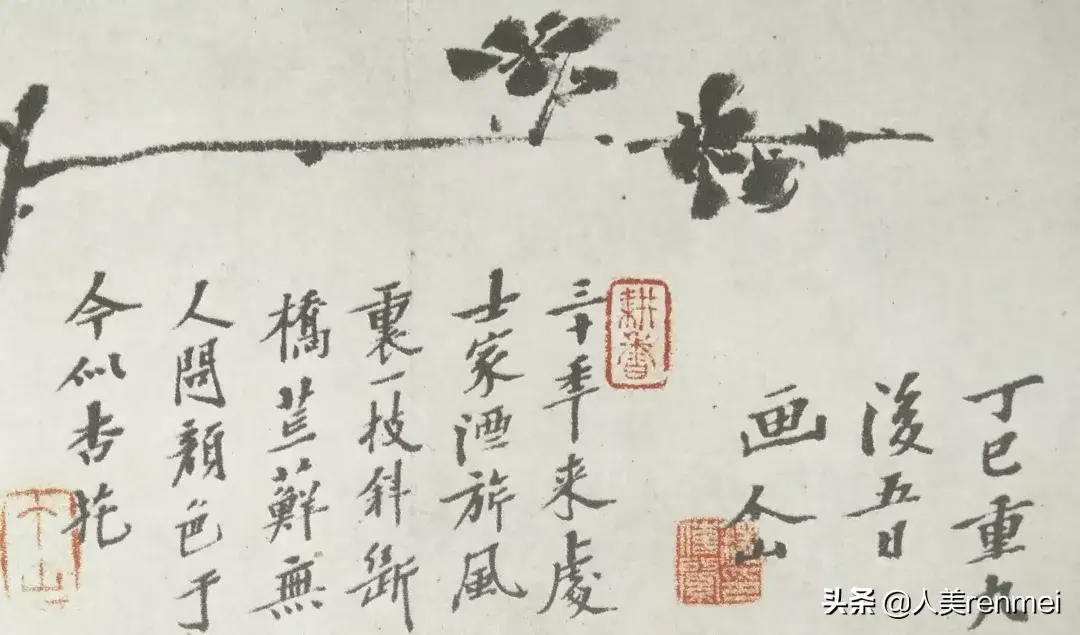 丁巳重九
後五日
画 个山
耕香
三十年来處
士家酒旂風
裏一枝斜斷
橋荒蘚無
人問顔色于
今似杏花
个山
头条 @人美renmei